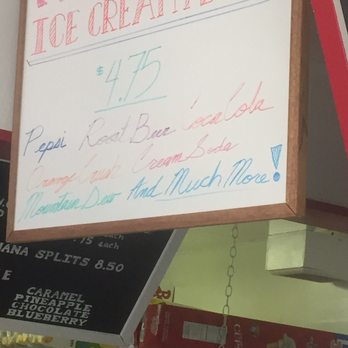 ICE CREAM
$4.75
Pepsi Root Beer Coca Cola
Orange Crush Cream Soda
Mountain Dew And Much More!
.75 each
NANA SPLITS 8.50
E
CARAMEL
PINEAPPLE
CHOCOLATE
BLUEBERRY